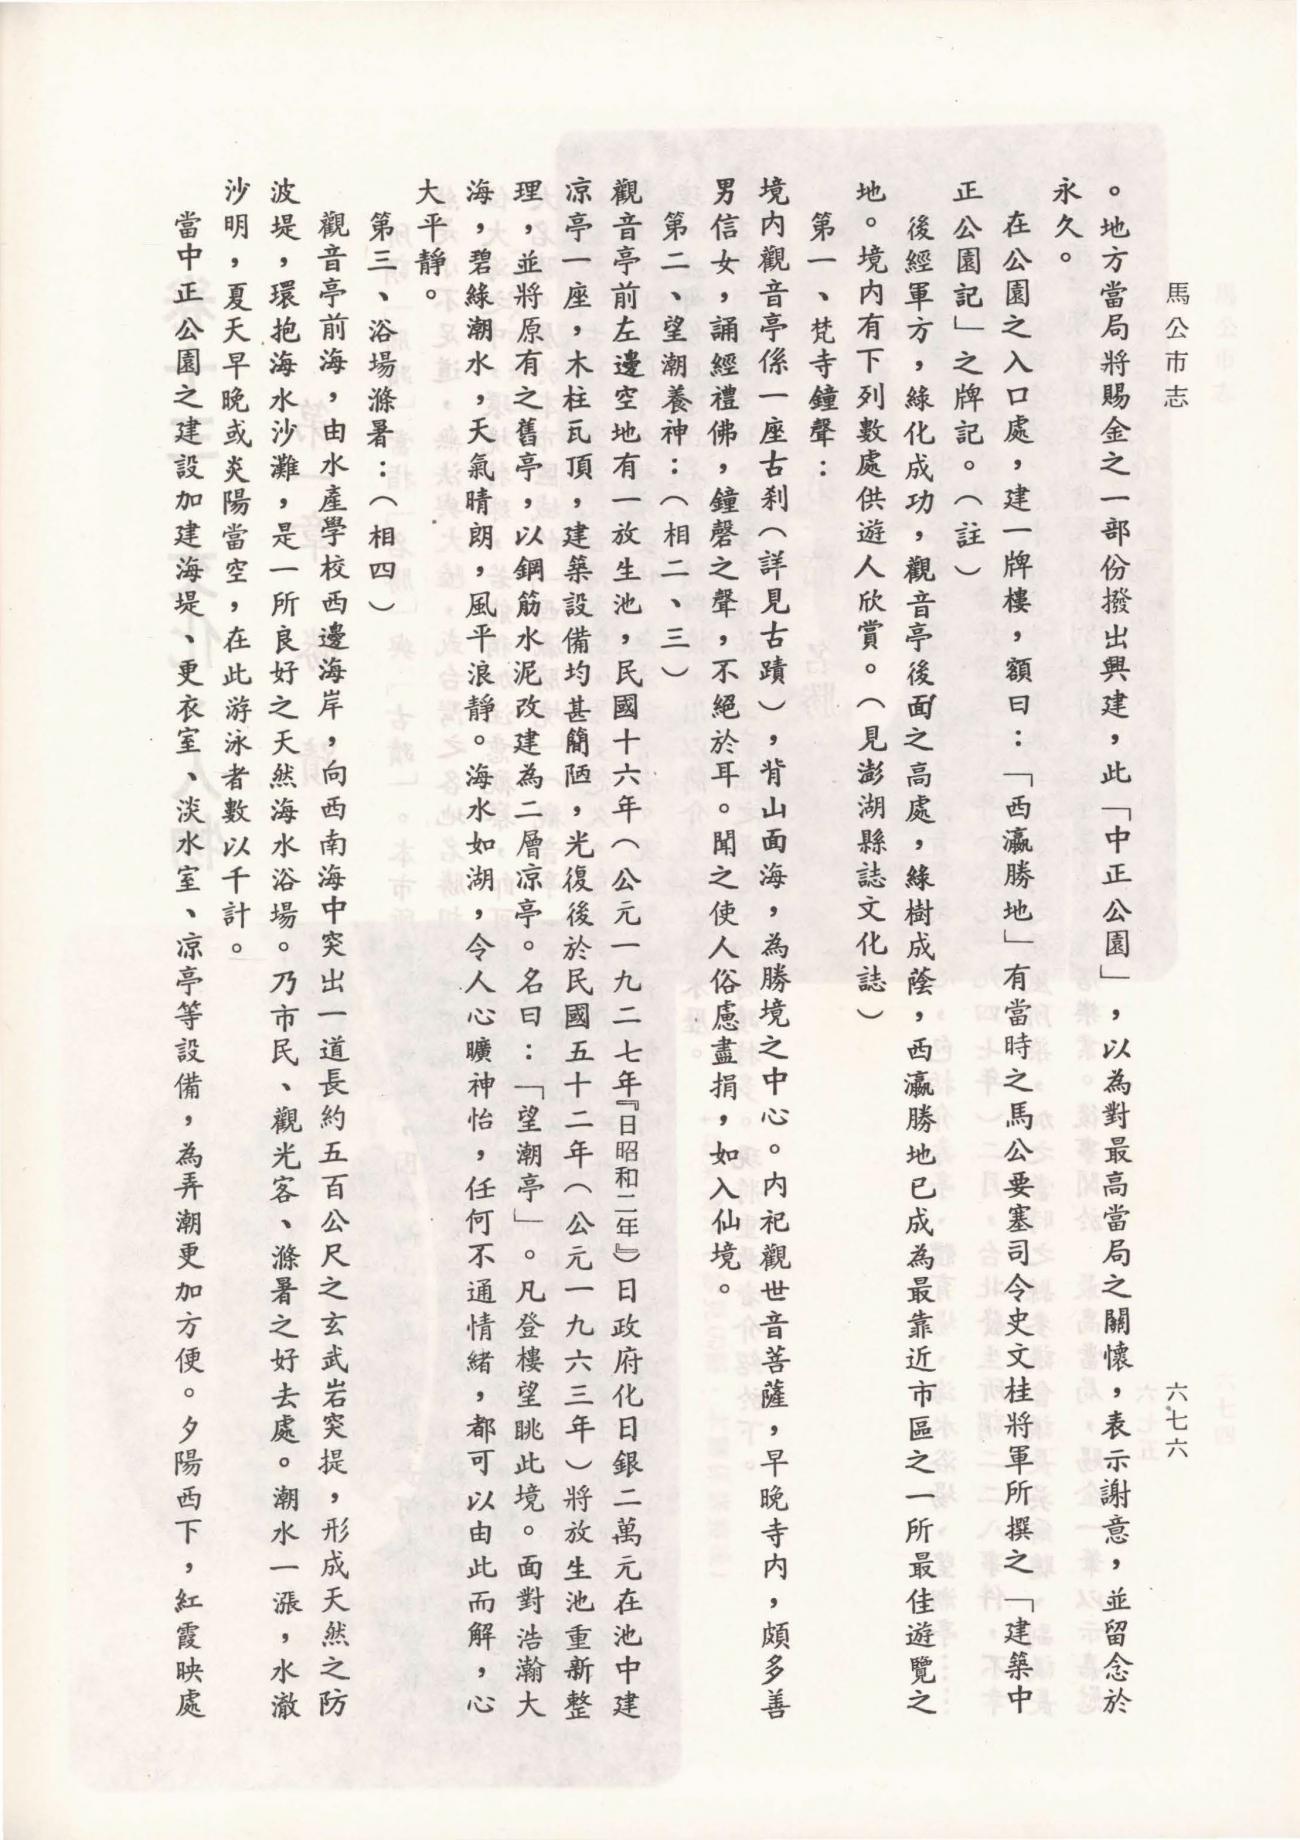 馬公市志
六七六
。地方當局將賜金之一部份撥出興建，此「中正公園」，以為對最高當局之關懷，表示謝意，並留念於
永久。
在公園之入口處，建一牌樓，額曰：「西瀛勝地」有當時之馬公要塞司令史文桂將軍所撰之「建築中
正公園記」之牌記。（註）
後經軍方，綠化成功，觀音亭後面之高處，綠樹成蔭，西瀛勝地已成為最靠近市區之一所最佳遊覽之
地。境內有下列數處供遊人欣賞。（見澎湖縣誌文化誌）
第一、梵寺鐘聲：
境內觀音亭係一座古剎（詳見古蹟），背山面海，為勝境之中心。內祀觀世音菩薩，早晚寺內，頗多善
男信女，誦經禮佛，鐘磬之聲，不絕於耳。聞之使人俗慮盡捐，如入仙境。
第二、望潮養神：（相二、三）
觀音亭前左邊空地有一放生池，民國十六年（公元一九二七年『日昭和二年』）日政府化日銀二萬元在池中建
凉亭一座，木柱瓦頂，建築設備均甚簡陋，光復後於民國五十二年（公元一九六三年）將放生池重新整
理，並將原有之舊亭，以鋼筋水泥改建為二層凉亭。名曰：「望潮亭」。凡登樓望眺此境。面對浩瀚大
海，碧綠潮水，天氣晴朗，風平浪靜。海水如湖，令人心曠神怡，任何不通情緒，都可以由此而解，心
大平靜。
第三、浴場滌暑：（相四）
觀音亭前海，由水產學校西邊海岸，向西南海中突出一道長約五百公尺之玄武岩突提，形成天然之防
波堤，環抱海水沙灘，是一所良好之天然海水浴場。乃市民、觀光客、滌暑之好去處。潮水一漲，水澈
沙明，夏天早晚或炎陽當空，在此游泳者數以千計。
當中正公園之建設加建海堤、更衣室、淡水室、凉亭等設備，為弄潮更加方便。夕陽西下，紅霞映處